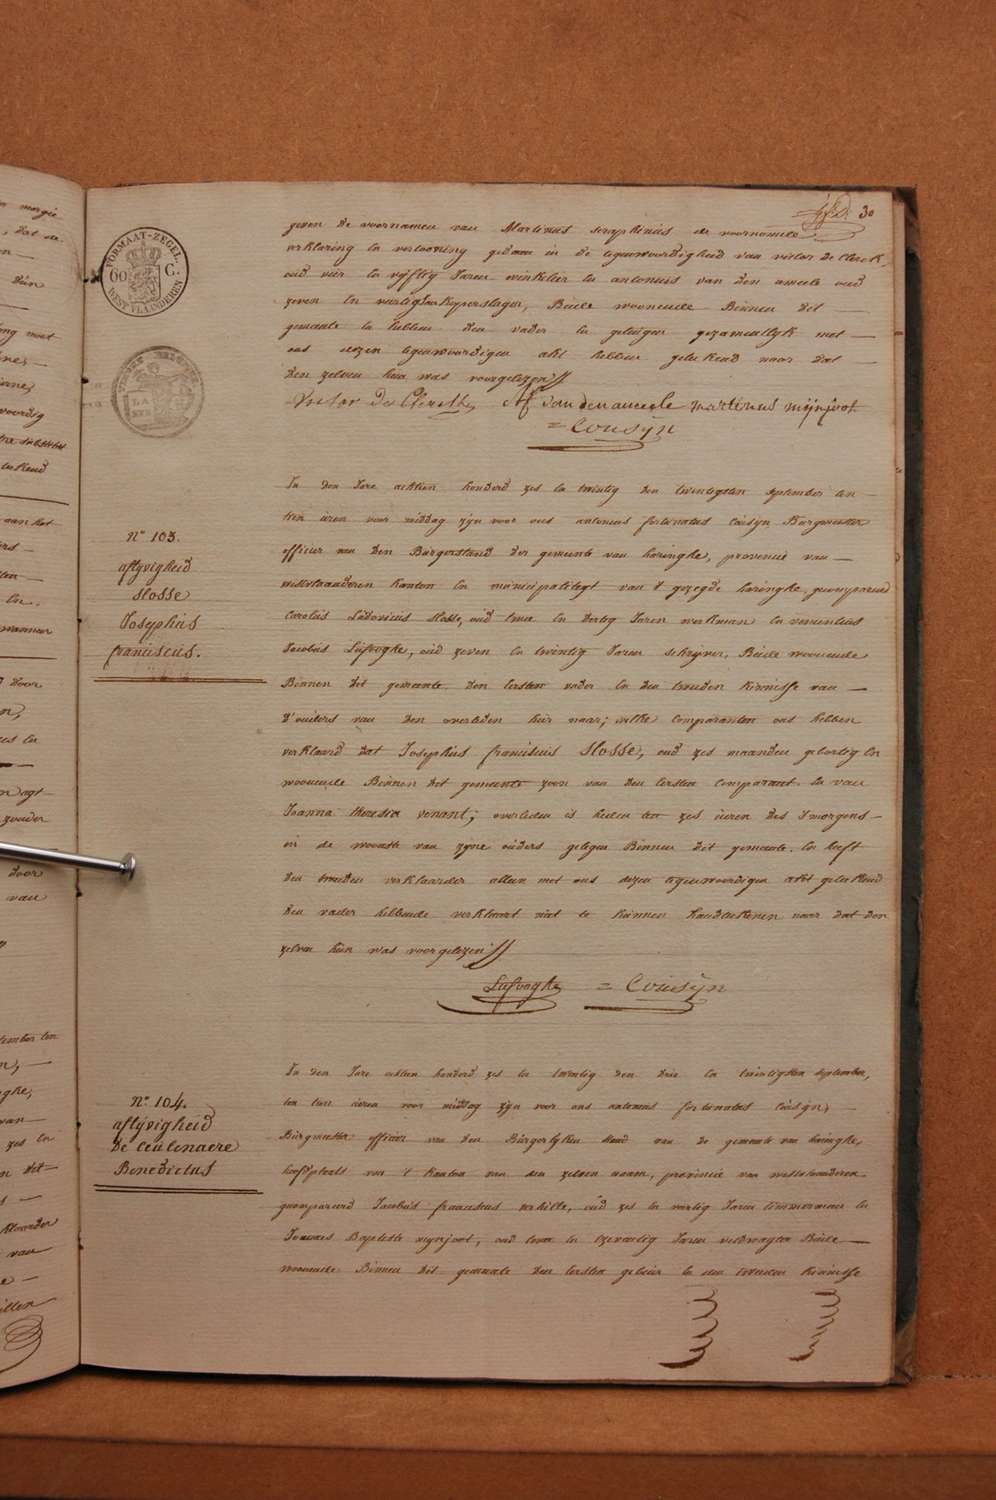 30
geven de voornamen van Martinus seraphinus de voornoemde
verklaring en vertooning gedaan in de tegenwoordigheid van victor De Clerck
oud vier en vyftig Jaren winkelier en antonius van den aweele oud
zeven en veertig Koperslager, Beide woonende Binnen dit
gemeente en hebben den vader en getuigen gezamentlyk met
ons dezen tegenwoordigen akt hebben geteekend naar dat
den zelven hun was voorgelezen
Victor De Clerck vandenaweele martinus mijnjoot
= Cousÿn
FORMAAT-ZEGEL.
60 C.
WEST VLAANDEREN
N° 103.
aflyvigheid
slosse
Josephus
franciscus.
In den Jare achtien honderd zes en twintig den twintigsten september ten
tien uren voor middag zyn voor ons antonius fortunatus Cousyn Burgmeester
officier van den Burgerstand der gemeente van haringhe, provincie van
westvlaanderen Kanton en municipaliteyt van 't gezegde haringhe gecompareerd
Carolus Ludovicus slosse, oud twee en dertig Jaren werkman en
Jacobus Lafvoghe, oud zeven en twintig Jaren schryver, Beide woonende
Binnen dit gemeente den eersten vader en den tweeden Kennisse van
d'ouders van den overleden hier naar; welke Comparanten ons hebben
verklaard dat Josephus franciscus Slosse, oud zes maanden geboortig en
woonende Binnen dit gemeente zoon van den eersten Comparant en van
Joanna theresia venant; overleden is heden ten zes uren des s'morgens
in de woonste van zyne ouders gelegen Binnen dit gemeente. en heeft
den tweeden verklaarder alleen met ons dezen tegenwoordigen akt geteekend
den vader hebbende verklaart niet te kunnen handteekenen naer dat den
zelven hun was voorgelezen
Lafvoghe = Cousÿn
N° 104.
aflÿvigheid
De Ceulenaere
Benedictus
In den Jare achtien honderd zes en twintig den drie en twintigsten september,
ten tien uren voor middag zyn voor ons antonius fortunatus Cousyn,
Burgmeester officier van den Burgerlyken stand van de gemeente van haringhe,
hoofdplaats van 't Kanton van den zelven naam, provincie van westvlaanderen
gecompareerd Jacobus franciscus verhille, oud zes en veertig Jaren timmerman en
Joannes Baptiste mynjoot, oud twee en tzeventig Jaren veldwagter Beide
woonende Binnen dit gemeente den eersten gebuur en den tweeden Kennisse